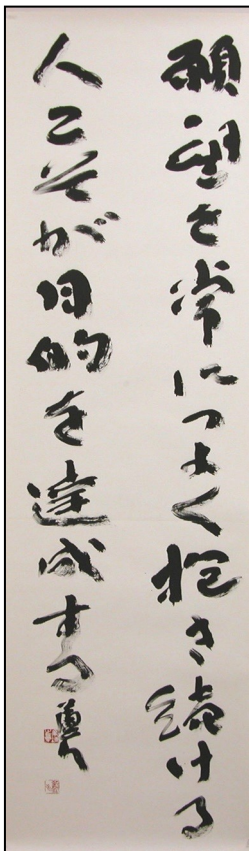 願望を常につよく抱き続ける
人こそが目的を達成する